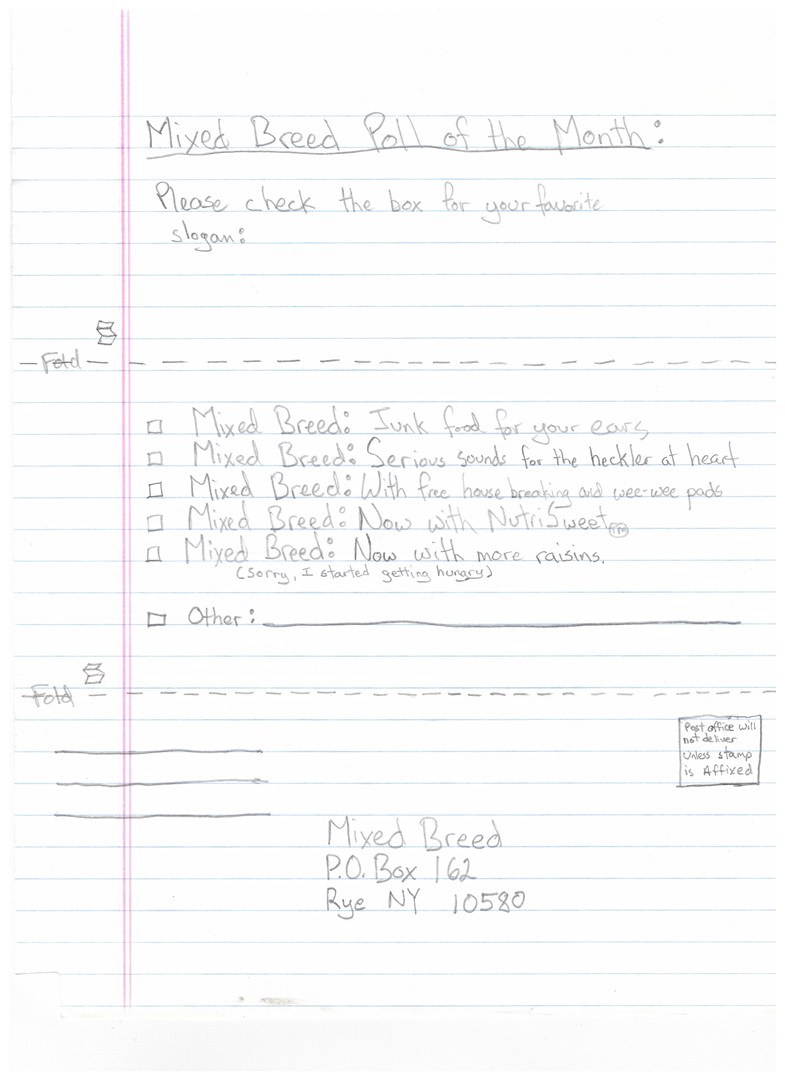 Mixed Breed Poll of the Month:
Please check the box for your favorite
slogan:
Fold
Mixed Breed: Junk food for your ears
Mixed Breed: Serious sounds for the heckler at heart
Mixed Breed: With free house breaking and wee-wee pads
Mixed Breed: Now with NutriSweet TM
Mixed Breed: Now with more raisins.
(Sorry, I started getting hungry)
Other:
Fold
Post office will
not deliver
Unless stamp
is Affixed
Mixed Breed
P.O. Box 162
Rye NY 10580